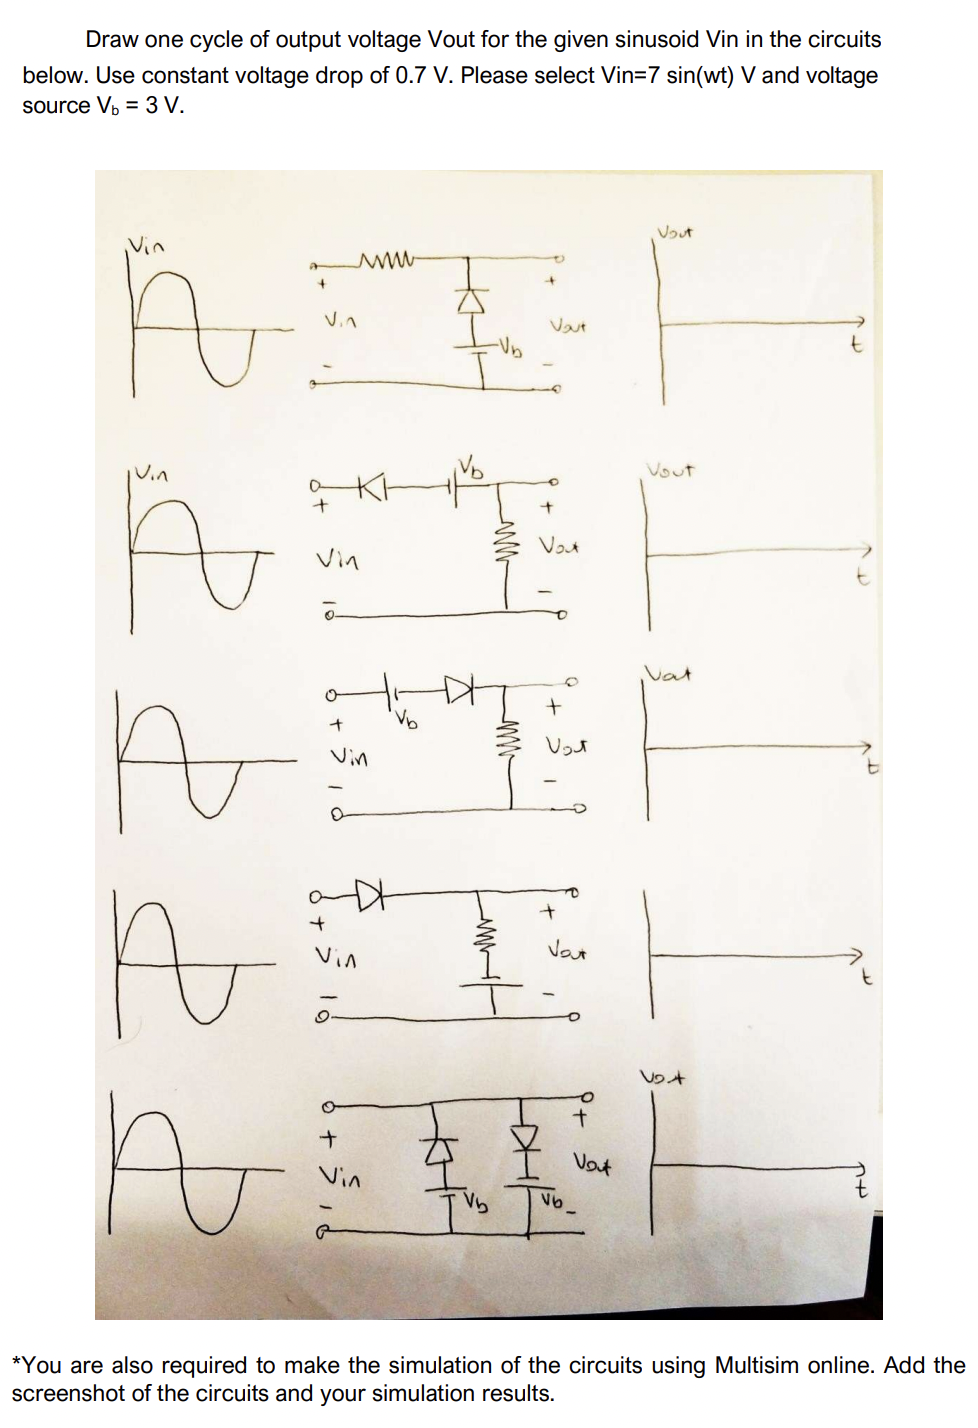 Draw one cycle of output voltage Vout for the given sinusoid Vin in the circuits
below. Use constant voltage drop of 0.7 V. Please select Vin=7 sin(wt) V and voltage
source Vb = 3 V.
Vin
+
Vin
-
Vb
+
Vout
-
Vout
t
Vin
+
Vin
-
Vb
+
Vout
-
Vout
t
+
Vin
-
Vb
+
Vout
-
Vout
t
+
Vin
-
+
Vout
-
t
+
Vin
-
Vb
Vb
+
Vout
-
Vout
t
*You are also required to make the simulation of the circuits using Multisim online. Add the
screenshot of the circuits and your simulation results.